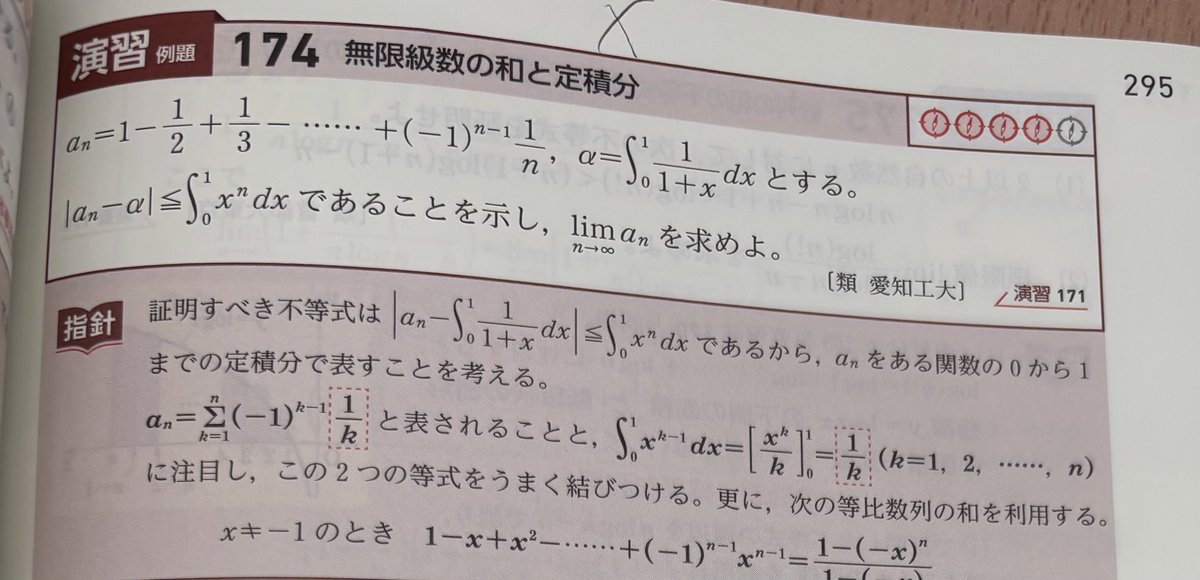 演習 例題 174 無限級数の和と定積分
295
a_n=1-1/2+1/3-……+(-1)^{n-1}1/n, α=∫_0^1 1/(1+x) dx とする。
|a_n-α|≦∫_0^1 x^n dx であることを示し, lim_{n→∞} a_n を求めよ。
[類 愛知工大] 演習 171
指針 証明すべき不等式は |a_n-∫_0^1 1/(1+x) dx|≦∫_0^1 x^n dx であるから, a_n をある関数の 0 から 1
までの定積分で表すことを考える。
a_n=Σ_{k=1}^n(-1)^{k-1} 1/k と表されることと, ∫_0^1 x^{k-1}dx=[x^k/k]_0^1=1/k (k=1, 2, ……, n)
に注目し, この2つの等式をうまく結びつける。更に, 次の等比数列の和を利用する。
x≠-1 のとき 1-x+x^2-……+(-1)^{n-1}x^{n-1}=1-(-x)^n